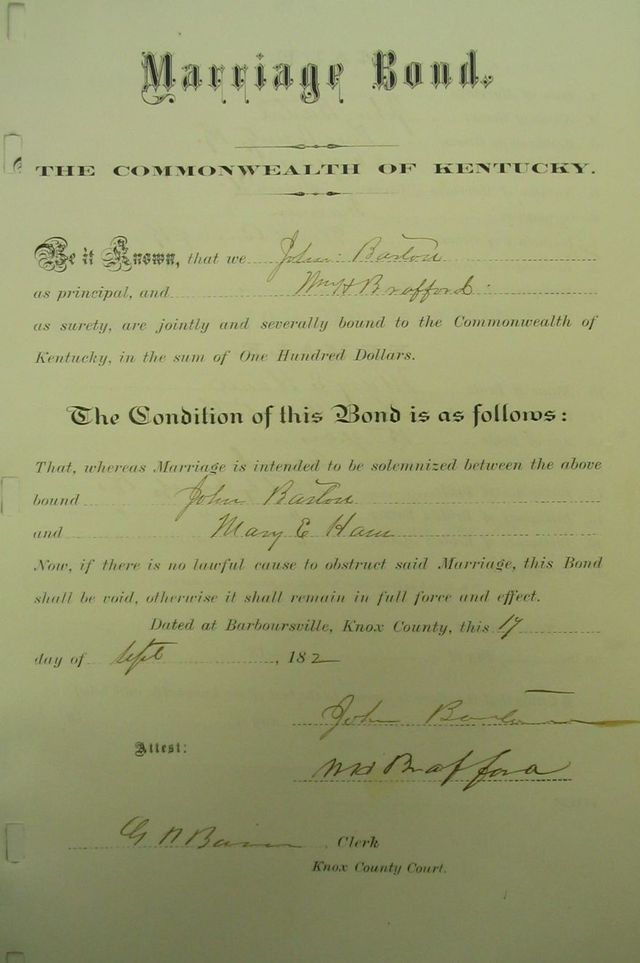 Marriage Bond.
THE COMMONWEALTH OF KENTUCKY.
Be it Known, that we John Barton
as principal, and Wm H Brafford
as surety, are jointly and severally bound to the Commonwealth of
Kentucky, in the sum of One Hundred Dollars.
The Condition of this Bond is as follows:
That, whereas Marriage is intended to be solemnized between the above
bound John Barton
and Mary E Ham
Now, if there is no lawful cause to obstruct said Marriage, this Bond
shall be void, otherwise it shall remain in full force and effect.
Dated at Barboursville, Knox County, this 17
day of Sept, 182
John Barton
Attest:
WH Brafford
G Clerk
Knox County Court.